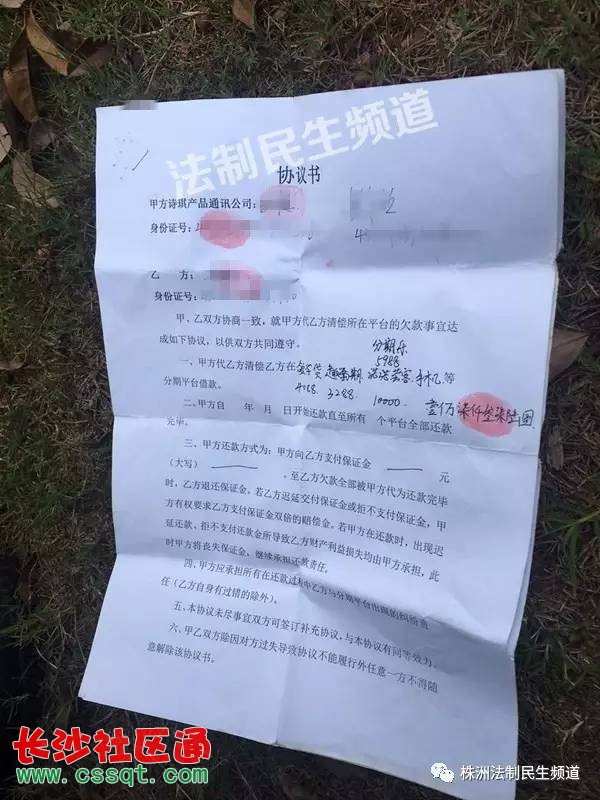 法制民生频道
协议书
甲方诗琪产品通讯公司:
身份证号:
乙 方:
身份证号:
甲、乙双方协商一致，就甲方代乙方清偿所在平台的欠款事宜达
成如下协议，以供双方共同遵守。
分期乐
5988
一、甲方代乙方清偿乙方在 名校贷 趣分期 手机 等
分期平台借款。 3288 10000
二、甲方自 年 月 日开始还款直至所有 个平台全部还款 壹万柒仟叁柒陆圆
完毕。
三、甲方还款方式为: 甲方向乙方支付保证金 元
(大写) ，至乙方欠款全部被甲方代为还款完毕
时，乙方退还保证金。若乙方迟延交付保证金或拒不支付保证金，甲
方有权要求乙方支付保证金双倍的赔偿金。若甲方在还款时，出现迟
延还款、拒不支付还款金所导致乙方财产利益损失均由甲方承担，此
时甲方将丧失保证金、继续承担还款责任。
四、甲方应承担所有在还款过程中乙方与分期平台出现的纠纷责
任(乙方自身有过错的除外)。
五、本协议未尽事宜双方可签订补充协议，与本协议有同等效力。
六、甲乙双方除因对方过失导致协议不能履行外任意一方不得随
意解除该协议书。
长沙社区通
www.cssqt.com
株洲法制民生频道